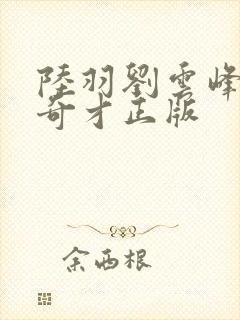 陸羽劉雲峰
奇才正版
余西根